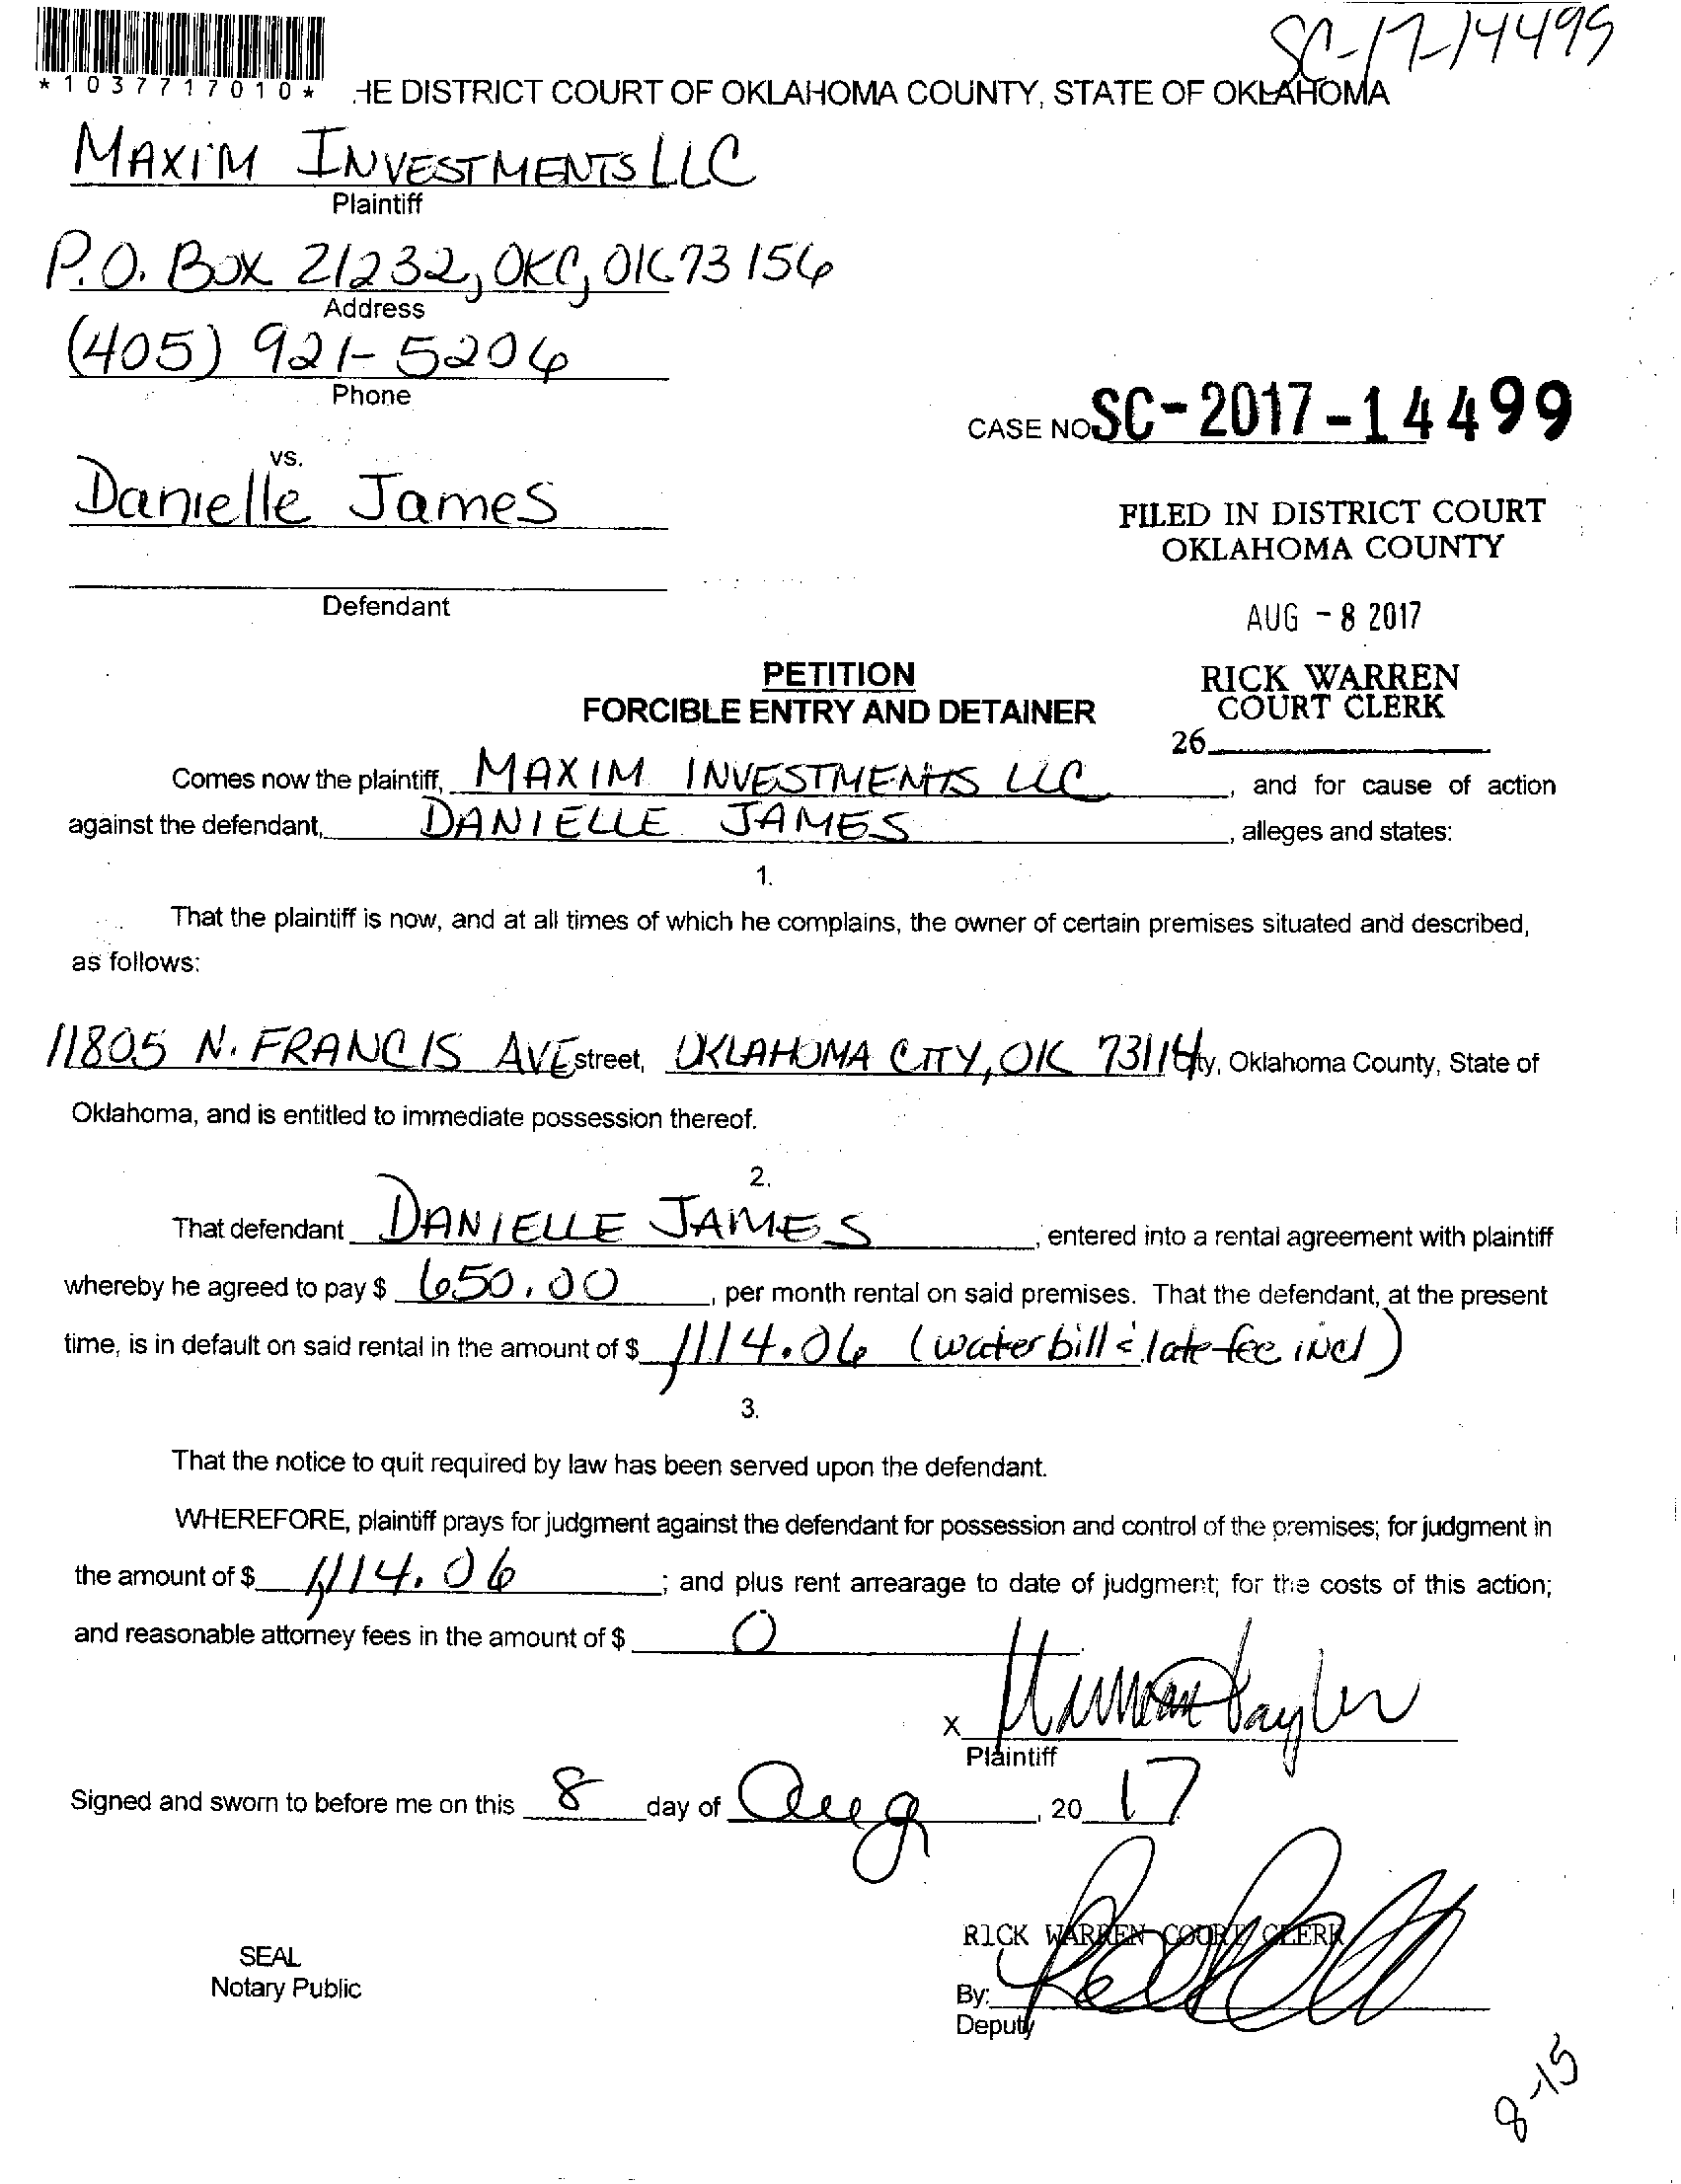 SC-17-14499
*1037717010*
HE DISTRICT COURT OF OKLAHOMA COUNTY, STATE OF OKLAHOMA
MAXIM INVESTMENTS LLC
Plaintiff
P.O. BOX 21232, OKC, OK 73156
Address
(405) 921-5206
Phone
CASE NO. SC-2017-14499
vs.
Danielle James
FILED IN DISTRICT COURT
OKLAHOMA COUNTY
Defendant
AUG - 8 2017
PETITION
FORCIBLE ENTRY AND DETAINER
RICK WARREN
COURT CLERK
26
Comes now the plaintiff, MAXIM INVESTMENTS LLC, and for cause of action
against the defendant, DANIELLE JAMES, alleges and states:
1.
That the plaintiff is now, and at all times of which he complains, the owner of certain premises situated and described,
as follows:
11805 N. FRANCIS AVE street, OKLAHOMA CITY, OK 73114 City, Oklahoma County, State of
Oklahoma, and is entitled to immediate possession thereof.
2.
That defendant DANIELLE JAMES, entered into a rental agreement with plaintiff
whereby he agreed to pay $ 650.00, per month rental on said premises. That the defendant, at the present
time, is in default on said rental in the amount of $ 1114.06 (water bill & late fee incl)
3.
That the notice to quit required by law has been served upon the defendant.
WHEREFORE, plaintiff prays for judgment against the defendant for possession and control of the premises; for judgment in
the amount of $ 1,114.06; and plus rent arrearage to date of judgment; for the costs of this action;
and reasonable attorney fees in the amount of $ 0
X
Plaintiff
Signed and sworn to before me on this 8 day of Aug, 20 17
RICK WARREN COURT CLERK
SEAL
Notary Public
By:
Deputy
8-15